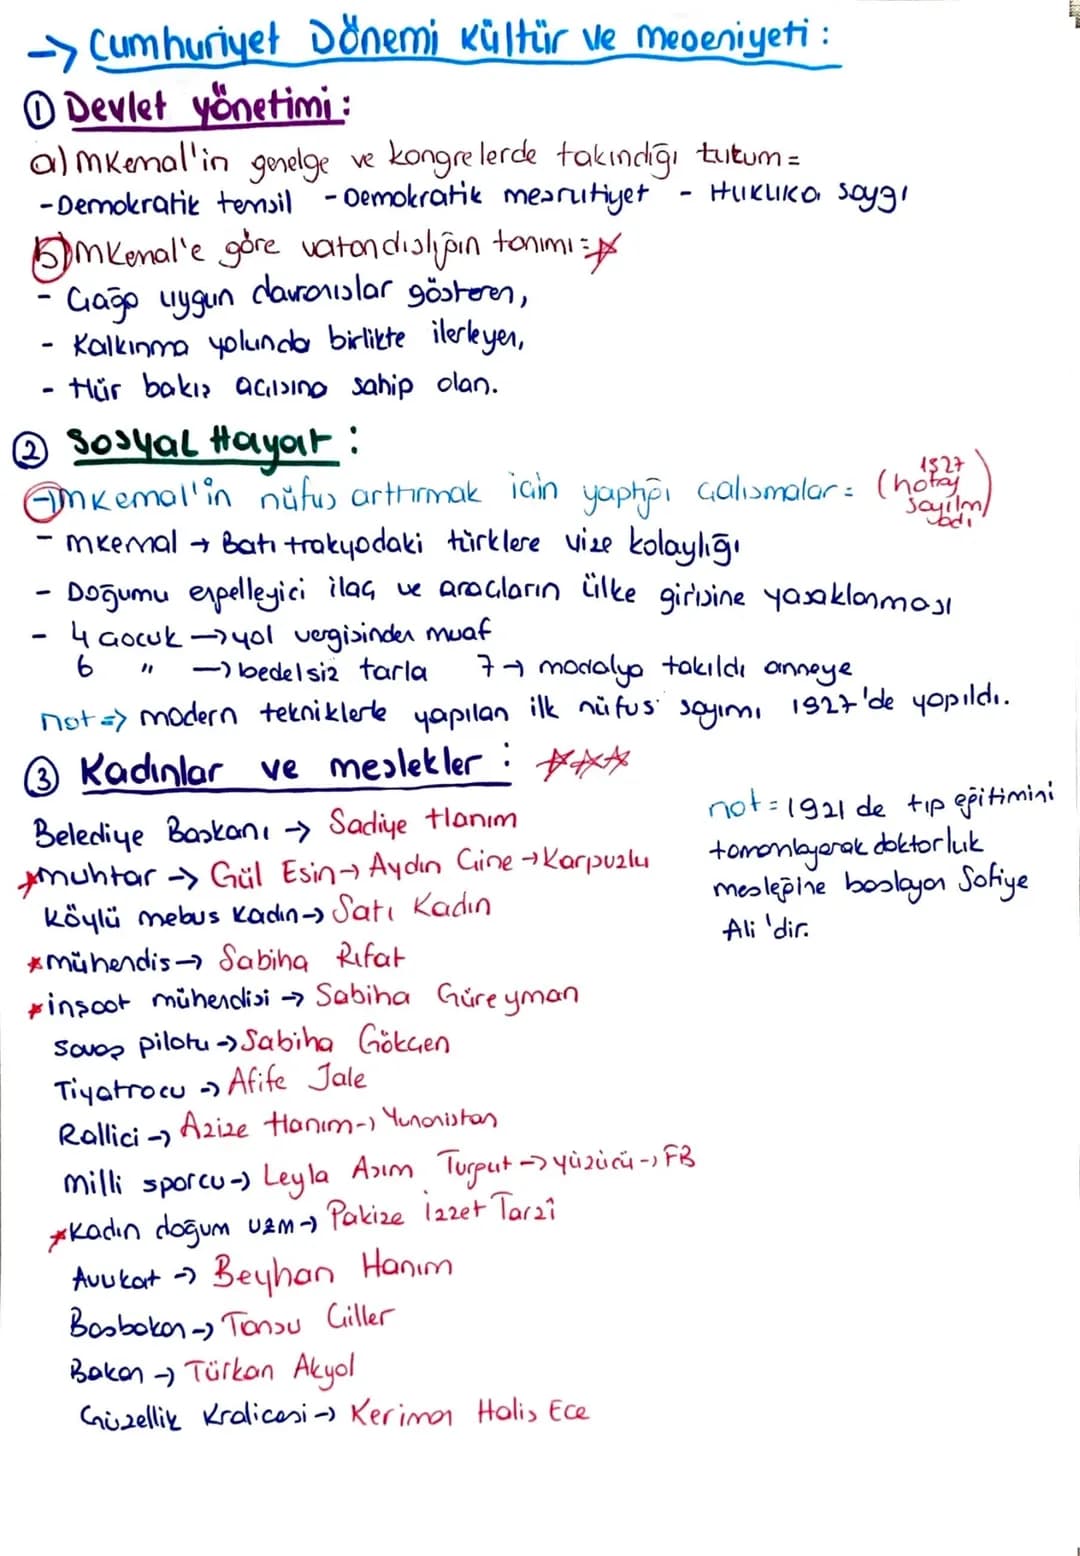 → Cumhuriyet Dönemi Kültür ve medeniyeti :
① Devlet yönetimi :
a) mKemal'in genelge ve kongrelerde takındığı tutum =
- Demokratik temsil - Demokratik meşrutiyet - Hukuka saygı
b) mKemal'e göre vatandışlığın tanımı =
- Çağa uygun davranışlar gösteren,
- Kalkınma yolunda birlikte ilerleyen,
- Hür bakış açısına sahip olan.
② Sosyal Hayat :
→ mKemal'in nüfus arttırmak için yaptığı çalışmalar = (1927 hatay sayılmadı)
- mkemal → Batı trakyadaki türklere vize kolaylığı
- Doğumu engelleyici ilaç ve araçların ülke girişine yasaklanması
- 4 çocuk → yol vergisinden muaf
6 " → bedelsiz tarla 7 → madalya takıldı anneye
not => modern tekniklerle yapılan ilk nüfus sayımı 1927'de yapıldı.
③ Kadınlar ve meslekler :
Belediye Başkanı → Sadiye Hanım
muhtar → Gül Esin → Aydın Çine → Karpuzlu
köylü mebus kadın → Satı Kadın
mühendis → Sabiha Rıfat
inşaat mühendisi → Sabiha Güreyman
savaş pilotu → Sabiha Gökçen
Tiyatrocu → Afife Jale
Rallici → Azize Hanım → Yunanistan
milli sporcu → Leyla Asım Turgut → yüzücü → FB
Kadın doğum uzm → Pakize İzzet Tarzî
Avukat → Beyhan Hanım
Başbakan → Tansu Çiller
Bakan → Türkan Akyol
Güzellik Kraliçesi → Keriman Halis Ece
not = 1921 de tıp eğitimini
tamamlayarak doktorluk
mesleğine başlayan Safiye
Ali 'dir.